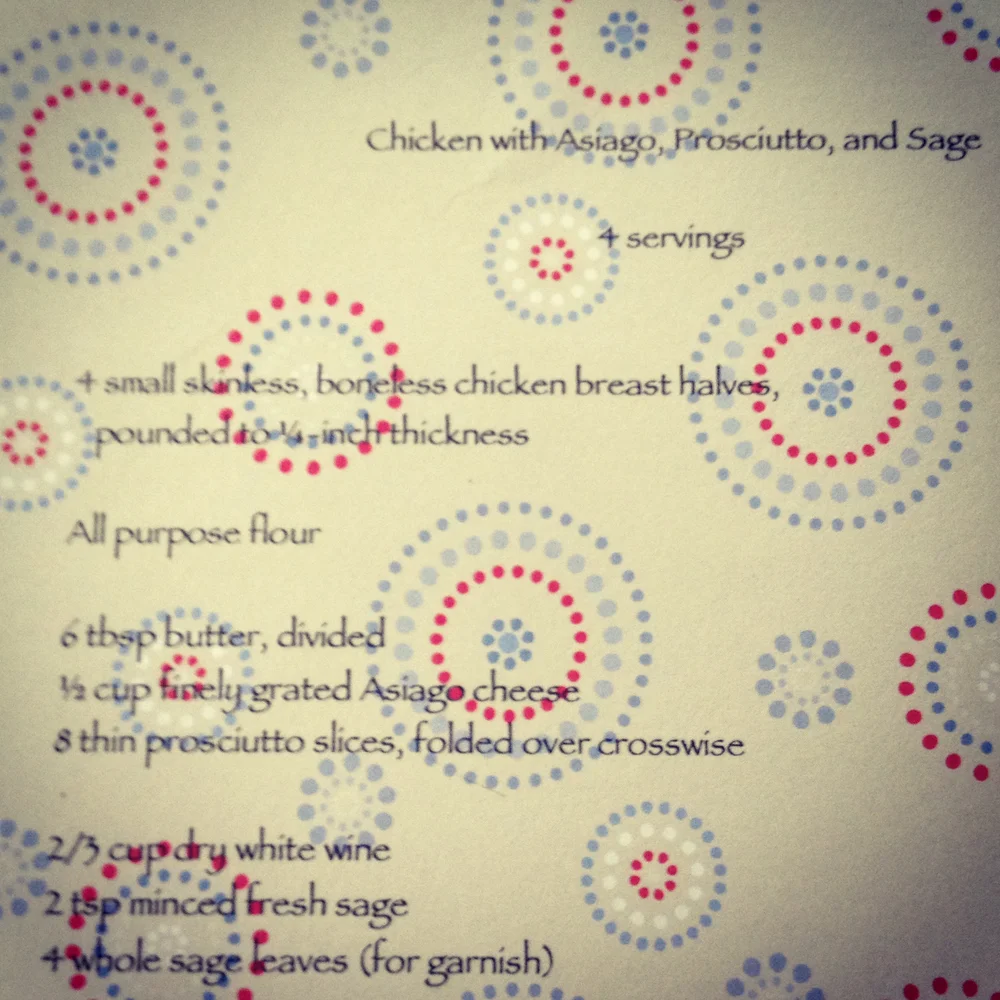 Chicken with Asiago, Prosciutto, and Sage
4 servings
4 small skinless, boneless chicken breast halves,
pounded to ¼-inch thickness
All purpose flour
6 tbsp butter, divided
½ cup finely grated Asiago cheese
8 thin prosciutto slices, folded over crosswise
2/3 cup dry white wine
2 tsp minced fresh sage
4 whole sage leaves (for garnish)